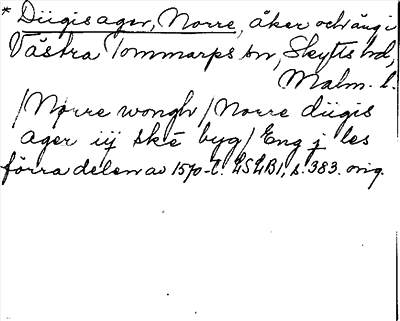 * Diigisager, Norre, åker och äng i
Västra Tommarps sn, Skytts hd,
Malm. l.
/Nørre wongh/Norre diigis
ager iij ske byg/Eng j les
förra delen av 1570-t. LSLB1, s. 383. orig.